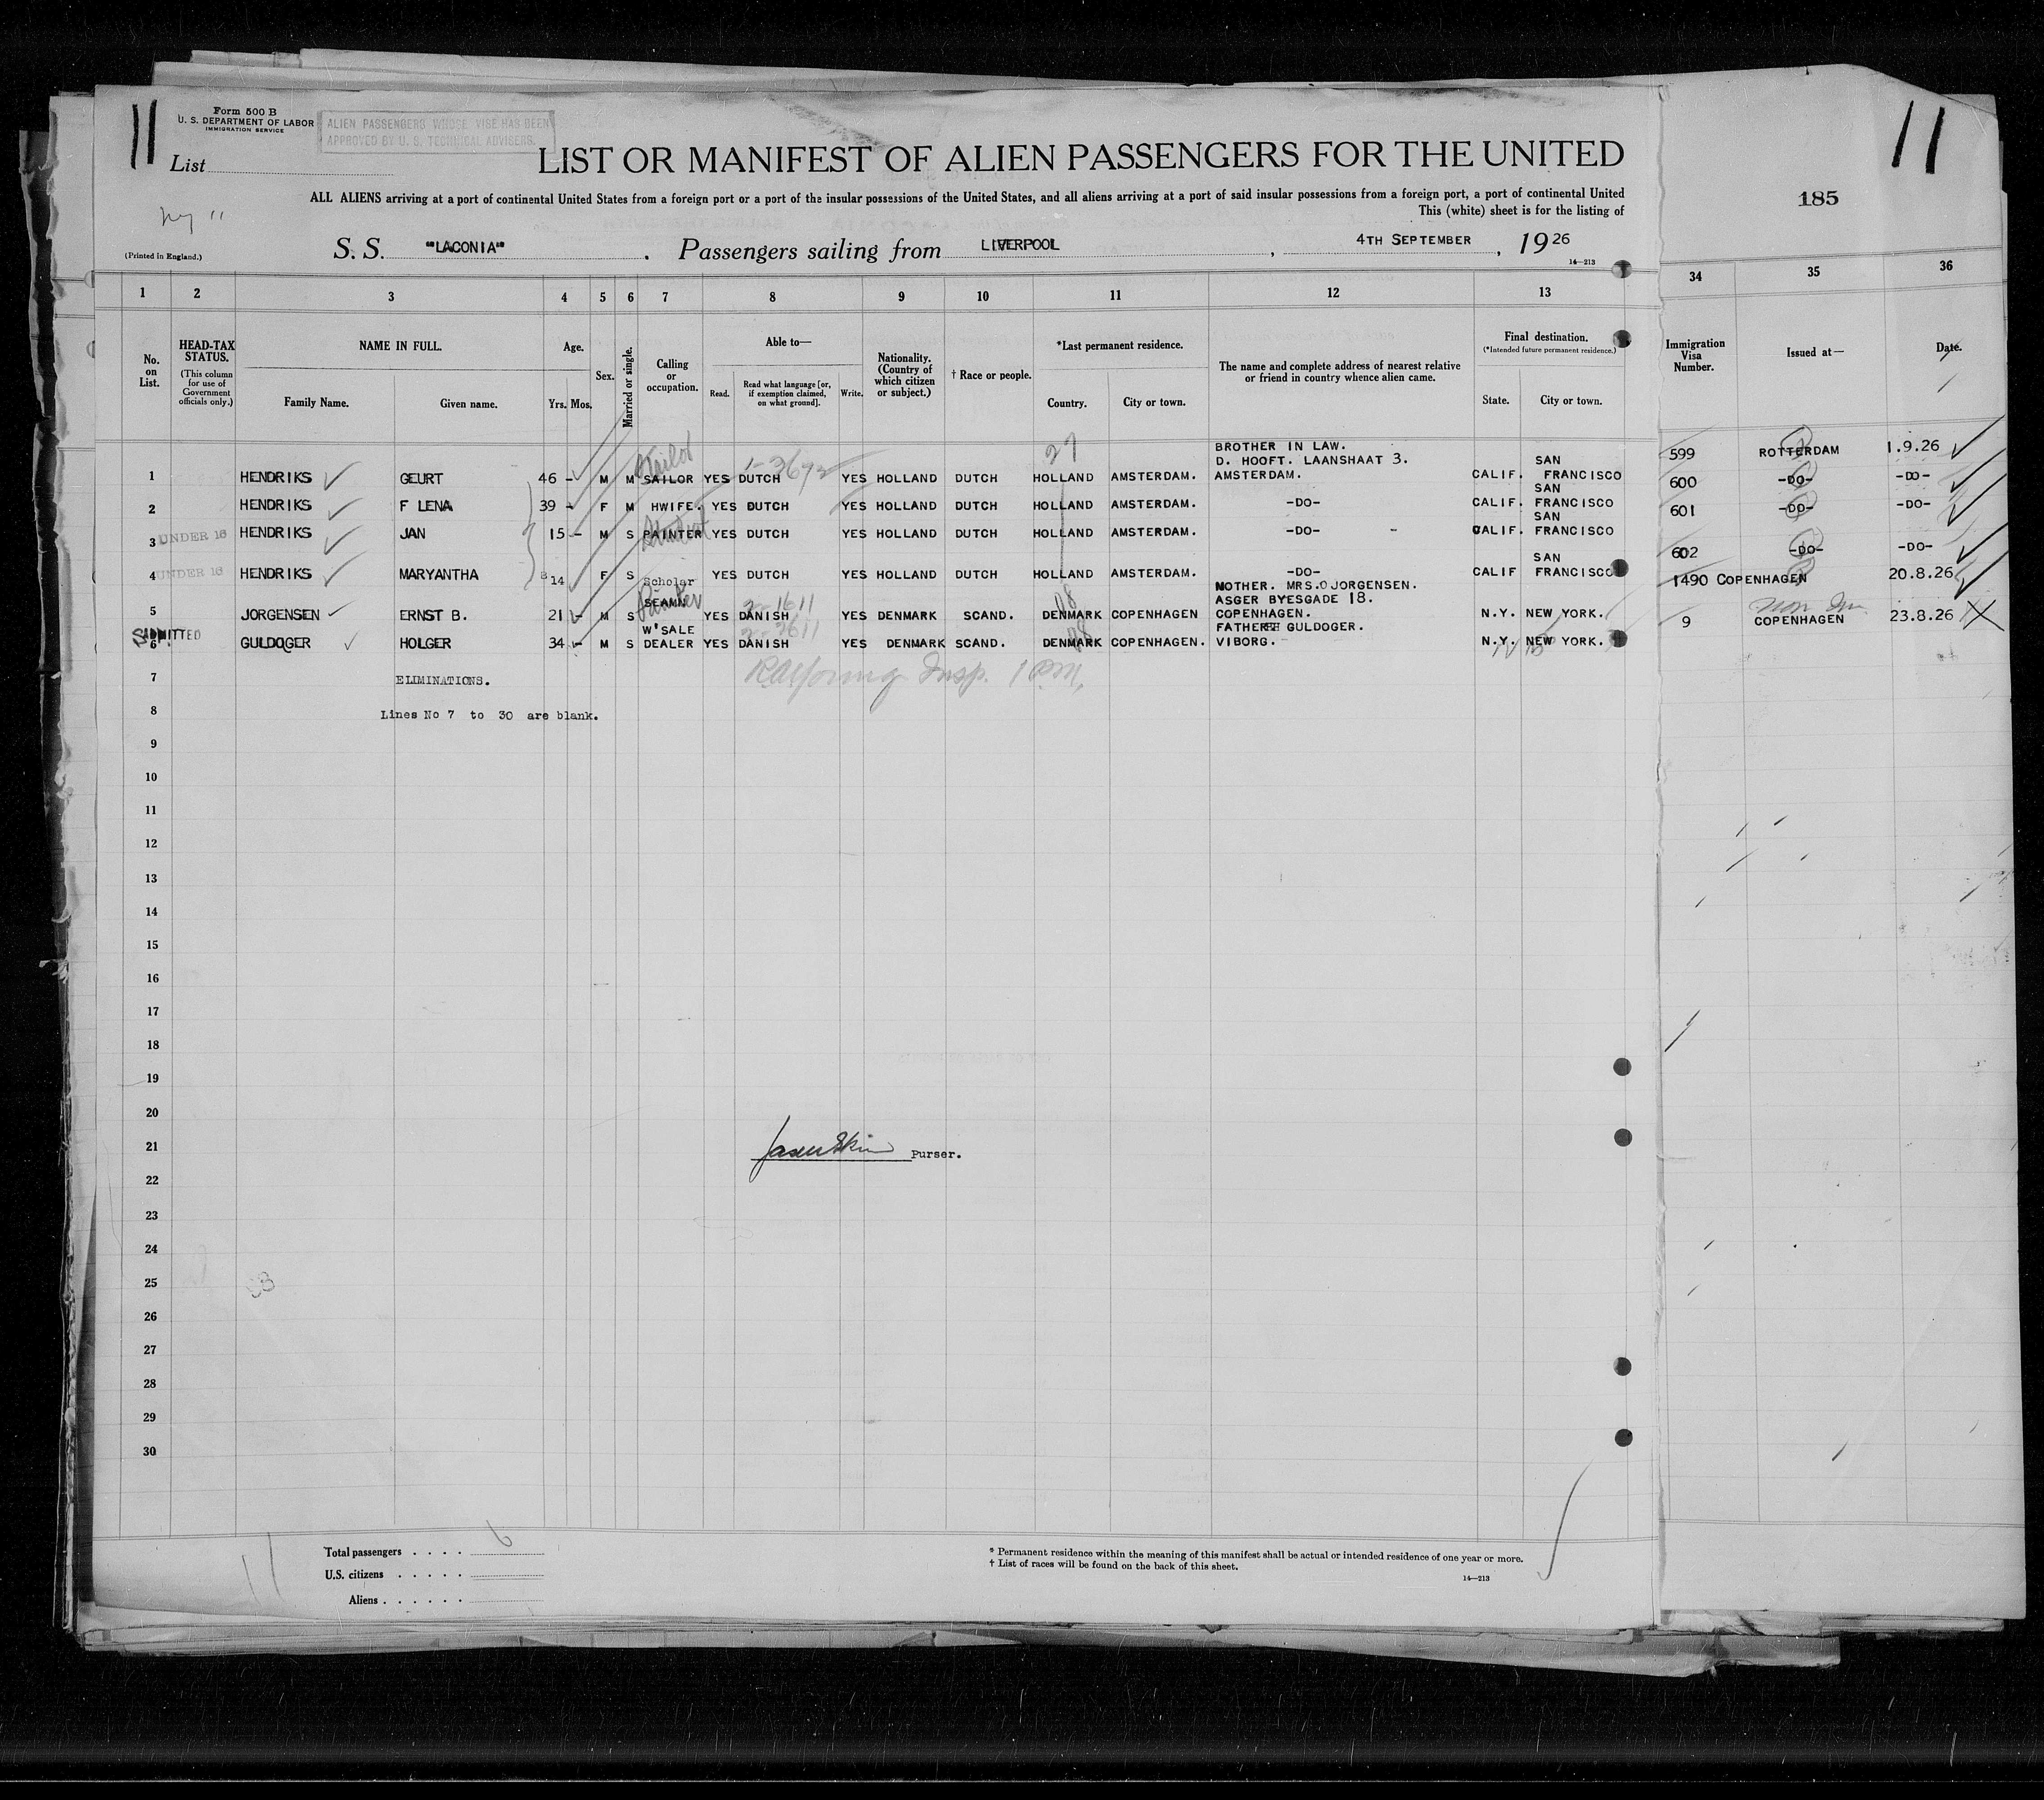 11
Form 500 B
U. S. DEPARTMENT OF LABOR
IMMIGRATION SERVICE
ALIEN PASSENGERS WHOSE VISE HAS BEEN
APPROVED BY U. S. TECHNICAL ADVISERS.
List
LIST OR MANIFEST OF ALIEN PASSENGERS FOR THE UNITED
11
185
ALL ALIENS arriving at a port of continental United States from a foreign port or a port of the insular possessions of the United States, and all aliens arriving at a port of said insular possessions from a foreign port, a port of continental United
This (white) sheet is for the listing of
(Printed in England.)
S. S. "LACONIA". Passengers sailing from LIVERPOOL, 4TH SEPTEMBER, 1926
14—213
1 2 3 4 5 6 7 8 9 10 11 12 13 34 35 36
No. on List.
HEAD-TAX STATUS. (This column for use of Government officials only.)
NAME IN FULL.
Family Name. Given name.
Age.
Yrs. Mos.
Sex.
Married or single.
Calling or occupation.
Able to—
Read. Read what language [or, if exemption claimed, on what ground]. Write.
Nationality. (Country of which citizen or subject.)
† Race or people.
*Last permanent residence.
Country. City or town.
The name and complete address of nearest relative or friend in country whence alien came.
Final destination.
(*Intended future permanent residence.)
State. City or town.
Immigration Visa Number.
Issued at—
Date.
27
1 HENDRIKS GEURT 46 - M M Tailor SAILOR YES DUTCH YES HOLLAND DUTCH HOLLAND AMSTERDAM. BROTHER IN LAW. D. HOOFT. LAANSHAAT 3. AMSTERDAM. CALIF. SAN FRANCISCO 599 ROTTERDAM 1.9.26
2 HENDRIKS F LENA 39 - F M HWIFE. YES DUTCH YES HOLLAND DUTCH HOLLAND AMSTERDAM. -DO- CALIF. SAN FRANCISCO 600 -DO- -DO-
3 UNDER 16 HENDRIKS JAN 15 - M S Student PAINTER YES DUTCH YES HOLLAND DUTCH HOLLAND AMSTERDAM. -DO- - CALIF. SAN FRANCISCO 601 -DO- -DO-
4 UNDER 16 HENDRIKS MARYANTHA 14 F S Scholar YES DUTCH YES HOLLAND DUTCH HOLLAND AMSTERDAM. -DO- CALIF SAN FRANCISCO 602 -DO- -DO-
5 JORGENSEN ERNST B. 21 - M S SEAMN Painter YES DANISH YES DENMARK SCAND. DENMARK COPENHAGEN MOTHER. MRS.O JORGENSEN. ASGER BYESGADE 18. COPENHAGEN. N.Y. NEW YORK. 1490 COPENHAGEN 20.8.26
ADMITTED
6 GULDOGER HOLGER 34 - M S W'SALE DEALER YES DANISH YES DENMARK SCAND. DENMARK COPENHAGEN. FATHER GULDOGER. VIBORG. N.Y. NEW YORK. 9 COPENHAGEN 23.8.26
7
ELIMINATIONS.
8
Lines No 7 to 30 are blank.
9
10
11
12
13
14
15
16
17
18
19
20
21
Purser.
22
23
24
25
26
27
28
29
30
Total passengers . . . . 6
U.S. citizens . . . . .
Aliens . . . . . .
* Permanent residence within the meaning of this manifest shall be actual or intended residence of one year or more.
† List of races will be found on the back of this sheet.
14—213